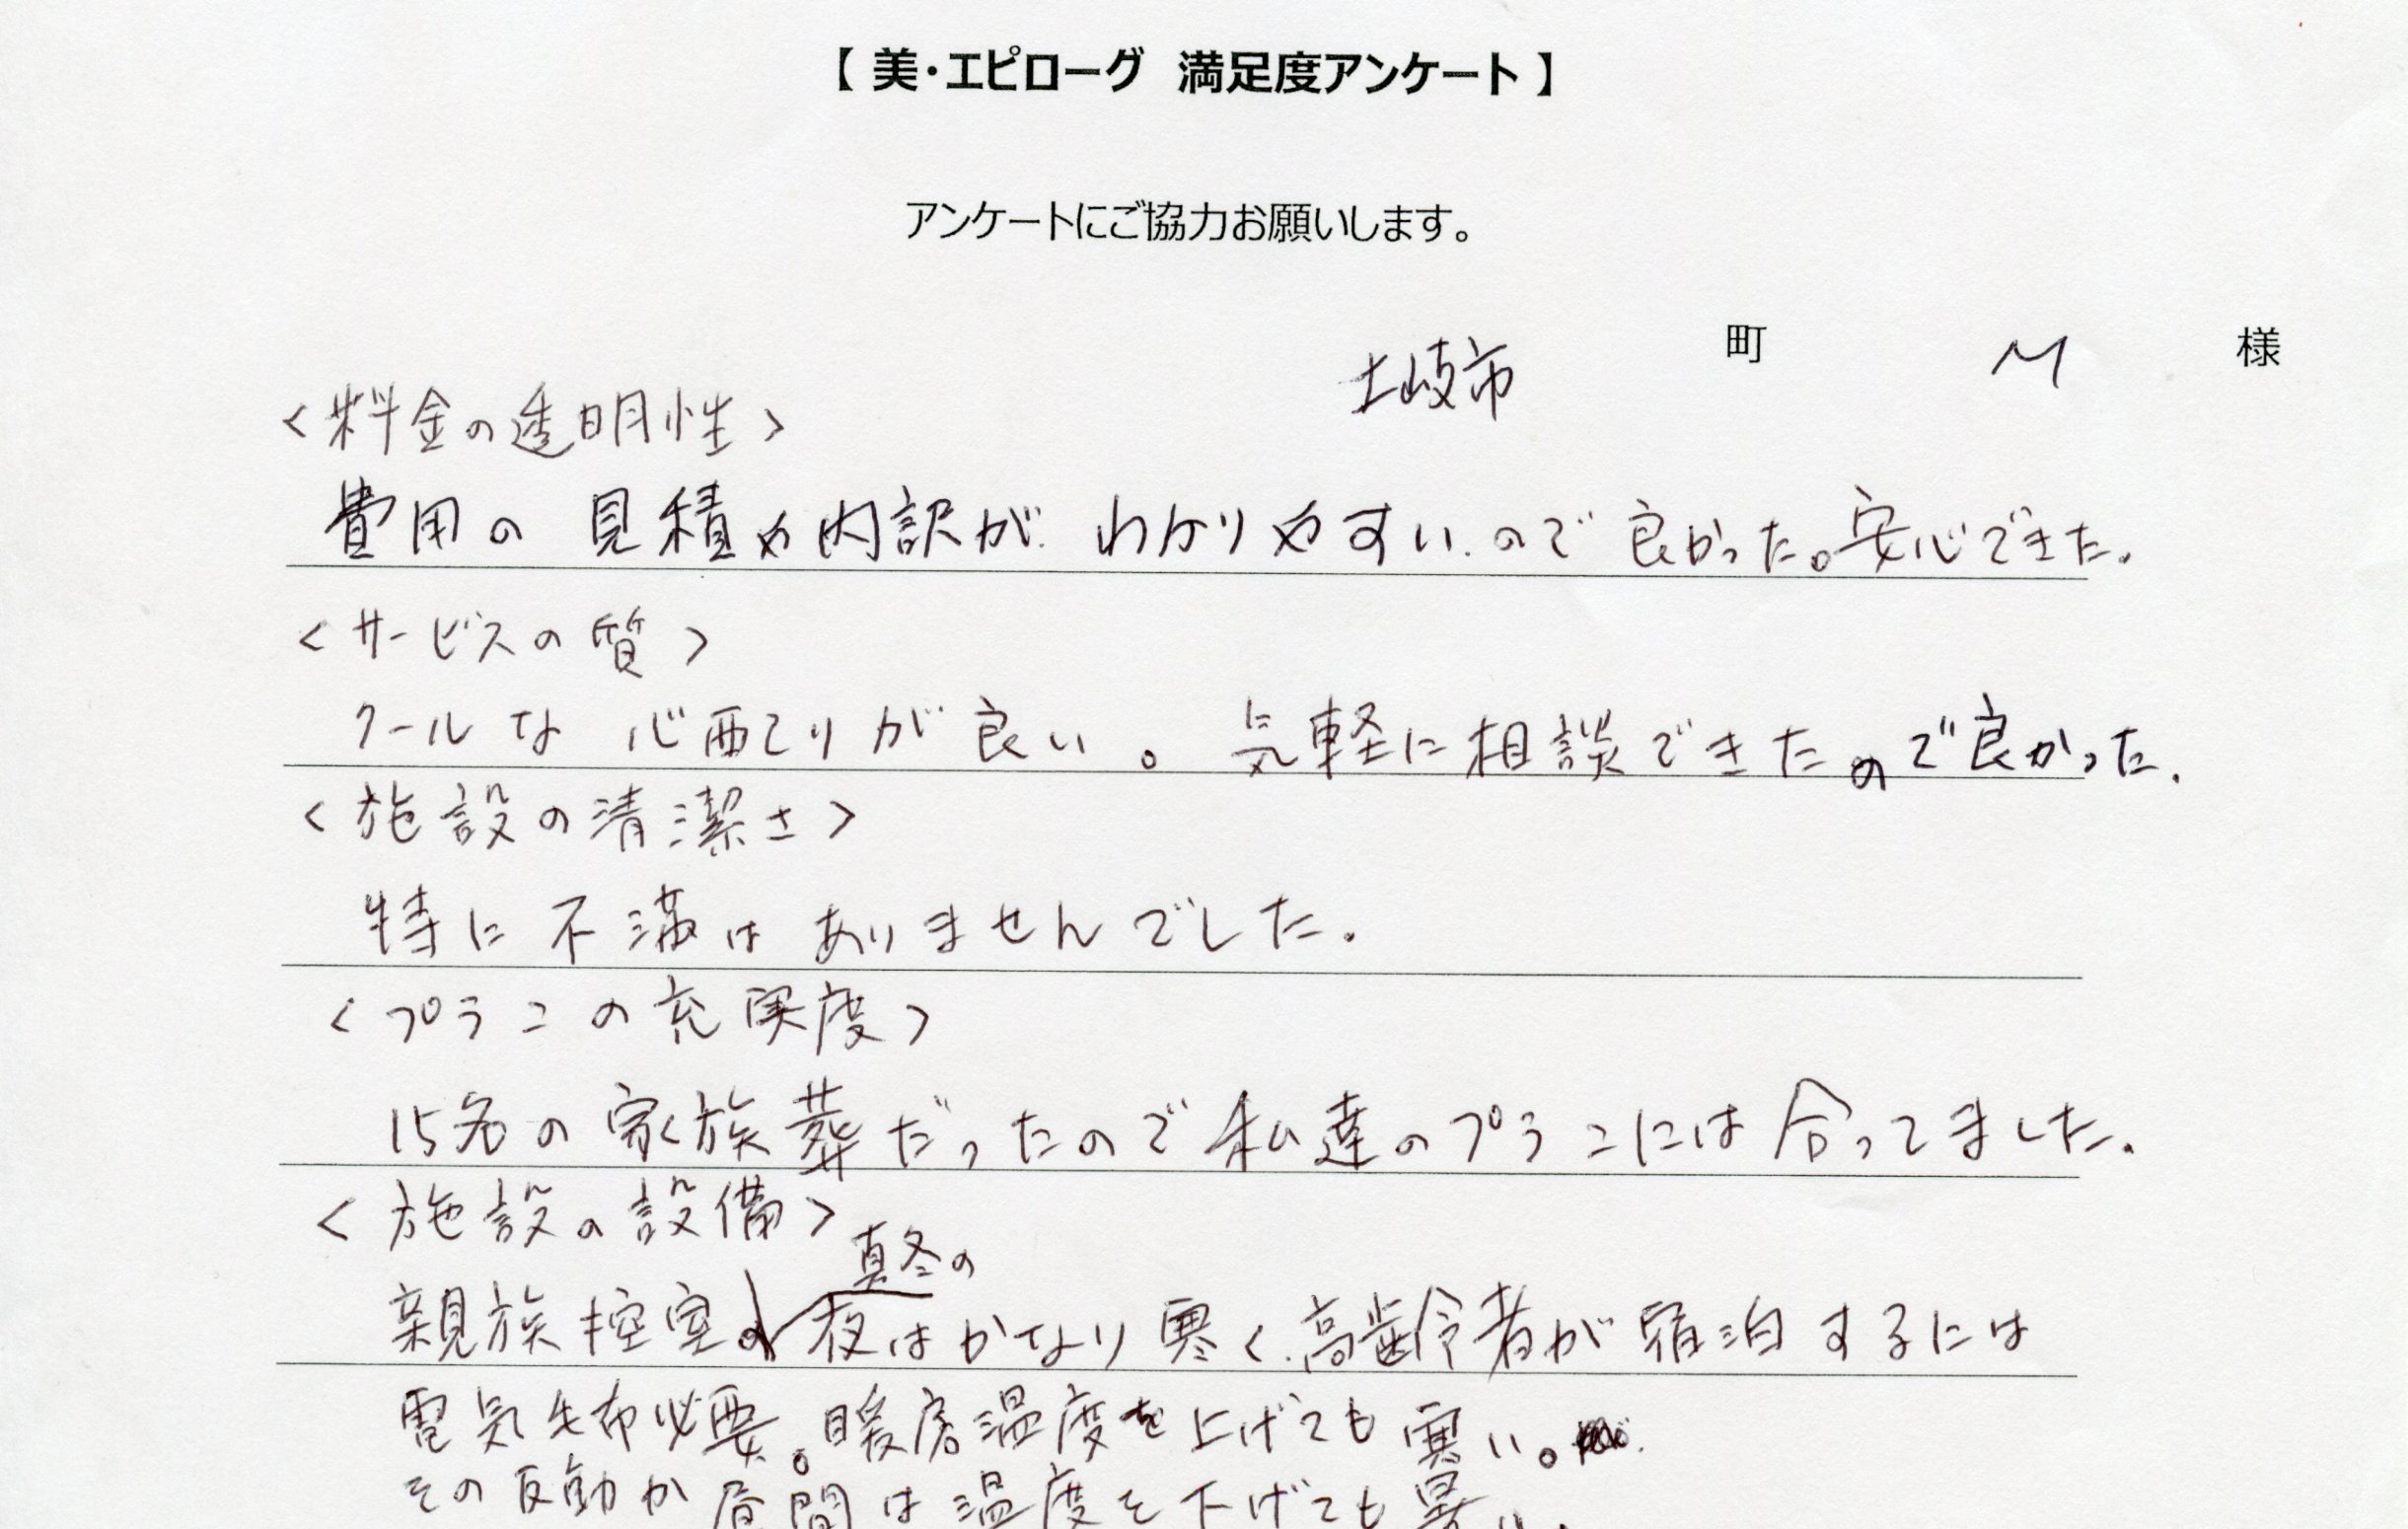 【 美・エピローグ 満足度アンケート 】
アンケートにご協力お願いします。
土岐市 町 M 様
<料金の透明性>
費用の 見積や内訳が わかりやすいので良かった。安心できた。
<サービスの質>
クールな 心配りが良い。 気軽に相談できたので良かった。
<施設の清潔さ>
特に不満はありませんでした。
<プランの充実度>
15名の家族葬だったので私達のプランには合ってました。
<施設の設備>
真冬の
親族控室の夜はかなり寒く、高齢者が宿泊するには
電気毛布必要。暖房温度を上げても寒い。
その反動か昼間は温度を下げても暑い。